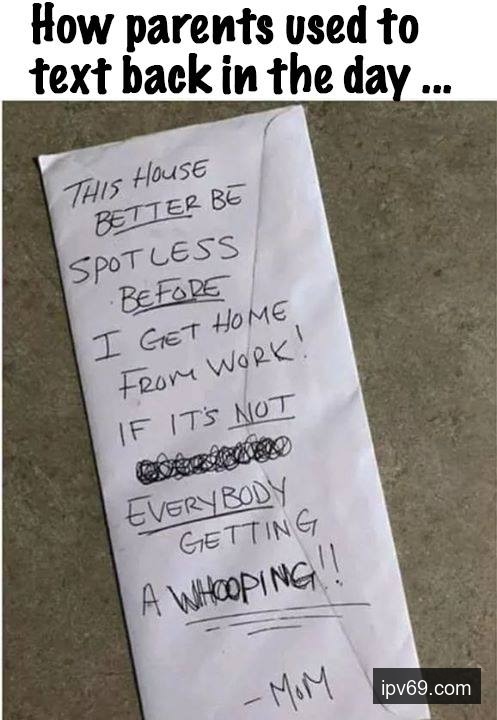 How parents used to
text back in the day ...
THIS HOUSE
BETTER BE
SPOTLESS
BEFORE
I GET HOME
FROM WORK!
IF IT'S NOT
EVERYBODY
GETTING
A WHOOPING!!
- MOM
ipv69.com